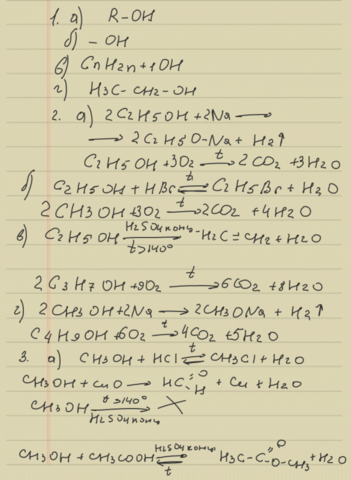 1. а) R-OH
б) - OH
в) CnH2n+1OH
г) H3C-CH2-OH
2. а) 2C2H5OH + 2Na ⟶
⟶ 2C2H5O-Na + H2↑
C2H5OH + 3O2 t⟶ 2CO2 + 3H2O
б) C2H5OH + HBr t⇌ C2H5Br + H2O
2CH3OH + 3O2 t⟶ 2CO2 + 4H2O
в) C2H5OH H2SO4конц⟶ t>140° H2C=CH2 + H2O
2C3H7OH + 9O2 t⟶ 6CO2 + 8H2O
г) 2CH3OH + 2Na ⟶ 2CH3ONa + H2↑
C4H9OH + 6O2 t⟶ 4CO2 + 5H2O
3. а) CH3OH + HCl t⇌ CH3Cl + H2O
CH3OH + CuO ⟶ HC=O H + Cu + H2O
CH3OH t>140°⟶ H2SO4конц ✕
CH3OH + CH3COOH H2SO4конц⇌ t H3C-C=O O-CH3 + H2O